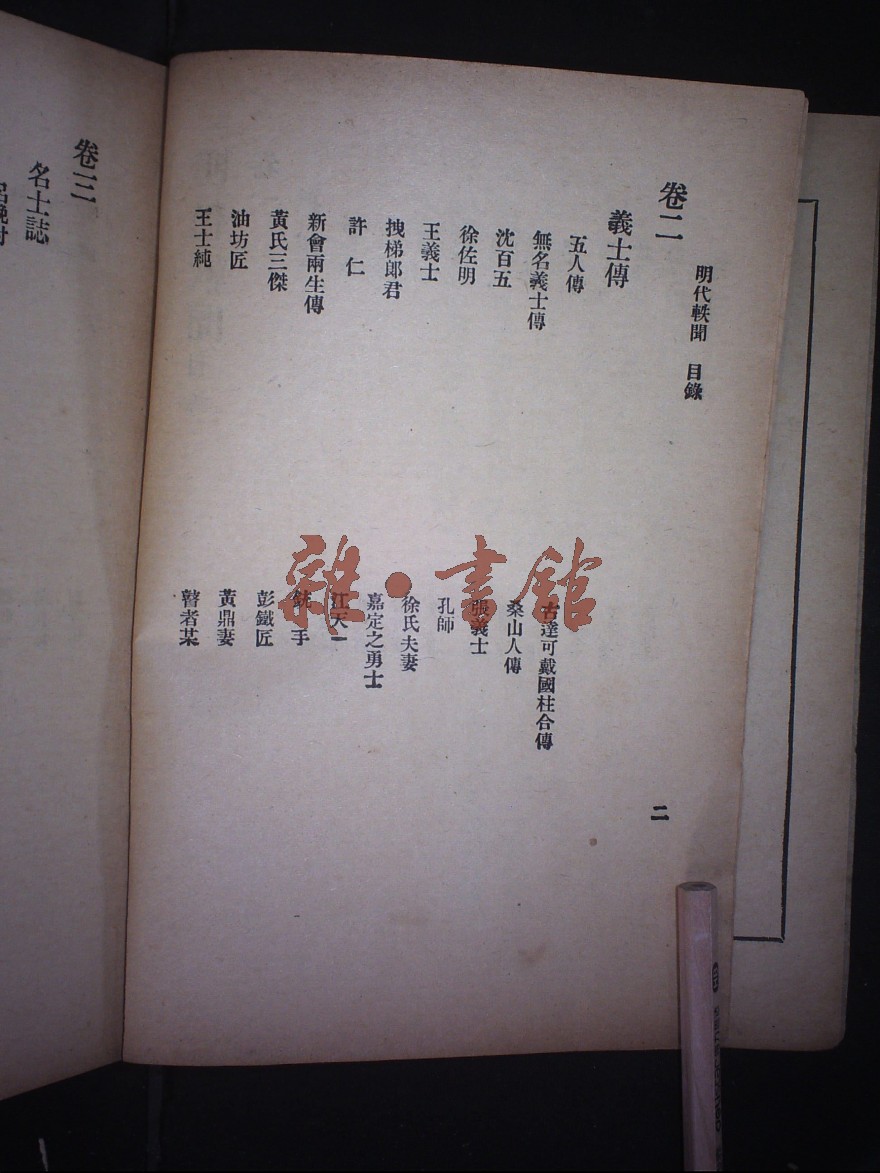 明代軼聞 目錄
卷二
義士傳
五人傳
古達可戴國柱合傳
無名義士傳
桑山人傳
沈百五
張義士
徐佐明
孔師
王義士
徐氏夫妻
拽梯郎君
嘉定之勇士
許仁
江天一
新會兩生傳
銃手
黃氏三傑
彭鐵匠
油坊匠
黃鼎妻
王士純
瞽者某
二
卷三
名士誌
雜·書館